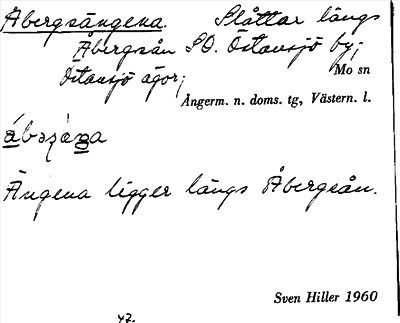 Åbergsängena. Slåttar längs
Åbergsån SO. Östansjö by;
Östansjö ägor;
Mo sn
Ångerm. n. doms. tg, Västern. l.
Ängena ligger längs Åbergsån.
Sven Hiller 1960
47.